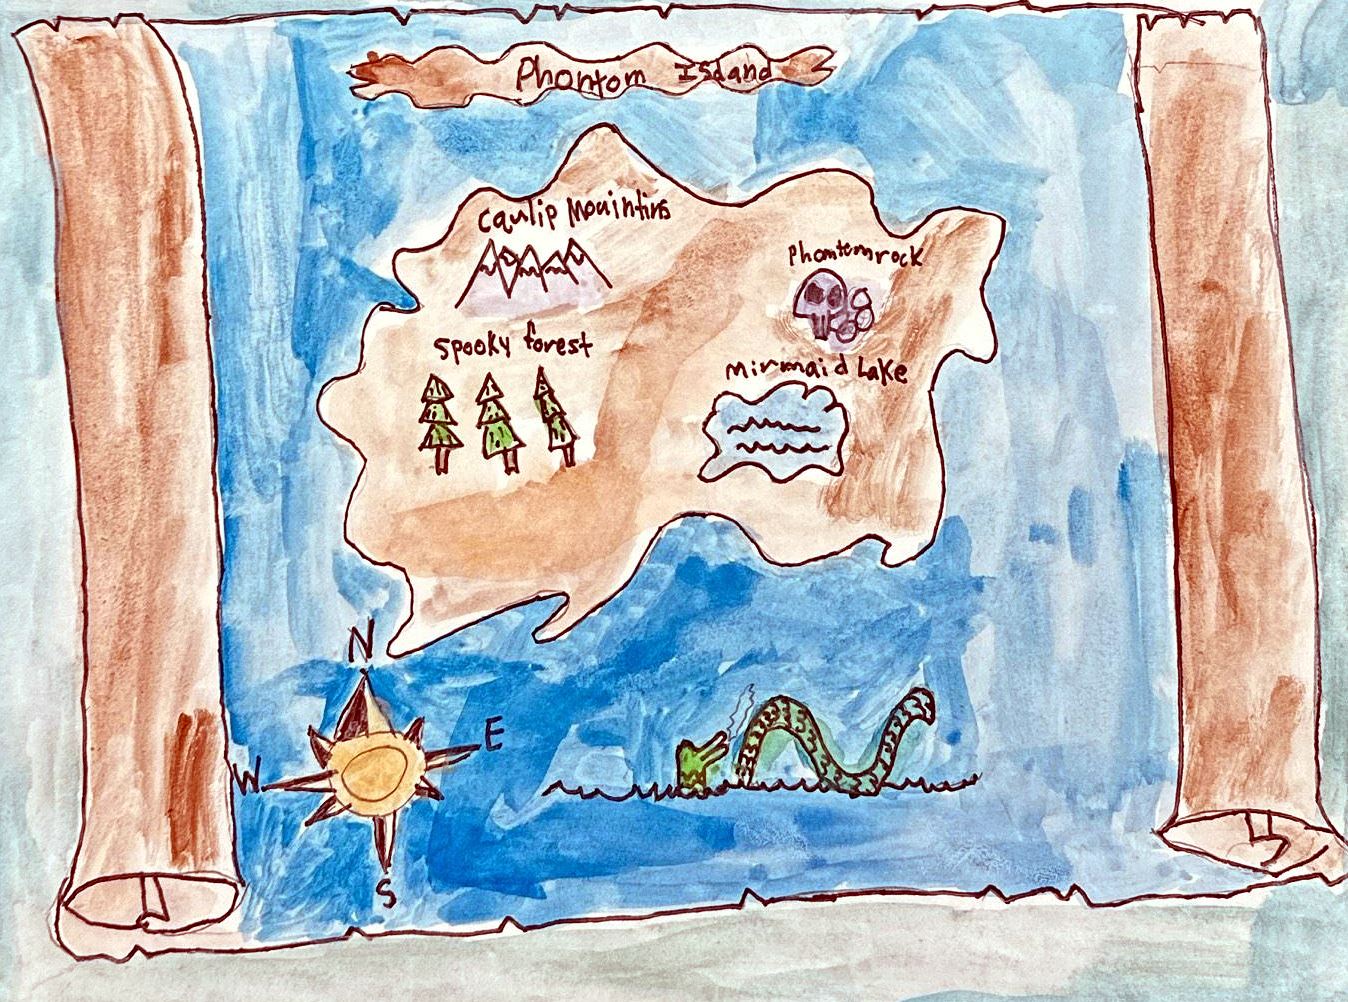 Phantom Island
Caulip Mouintins
Phantemrock
Spooky forest
Mirmaid Lake
N
E
W
S